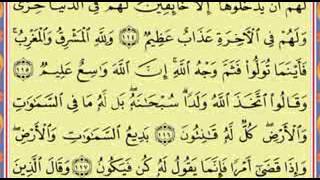 لَهُمْ أَن يَدْخُلُوهَا إِلَّا خَائِفِينَ لَهُمْ فِي الدُّنْيَا خِزْيٌ
وَلَهُمْ فِي الْآخِرَةِ عَذَابٌ عَظِيمٌ ١١٤ وَلِلَّهِ الْمَشْرِقُ وَالْمَغْرِبُ
فَأَيْنَمَا تُوَلُّوا فَثَمَّ وَجْهُ اللَّهِ إِنَّ اللَّهَ وَاسِعٌ عَلِيمٌ ١١٥
وَقَالُوا اتَّخَذَ اللَّهُ وَلَدًا سُبْحَانَهُ بَل لَّهُ مَا فِي السَّمَاوَاتِ
وَالْأَرْضِ كُلٌّ لَّهُ قَانِتُونَ ١١٦ بَدِيعُ السَّمَاوَاتِ وَالْأَرْضِ
وَإِذَا قَضَىٰ أَمْرًا فَإِنَّمَا يَقُولُ لَهُ كُن فَيَكُونُ ١١٧ وَقَالَ الَّذِينَ